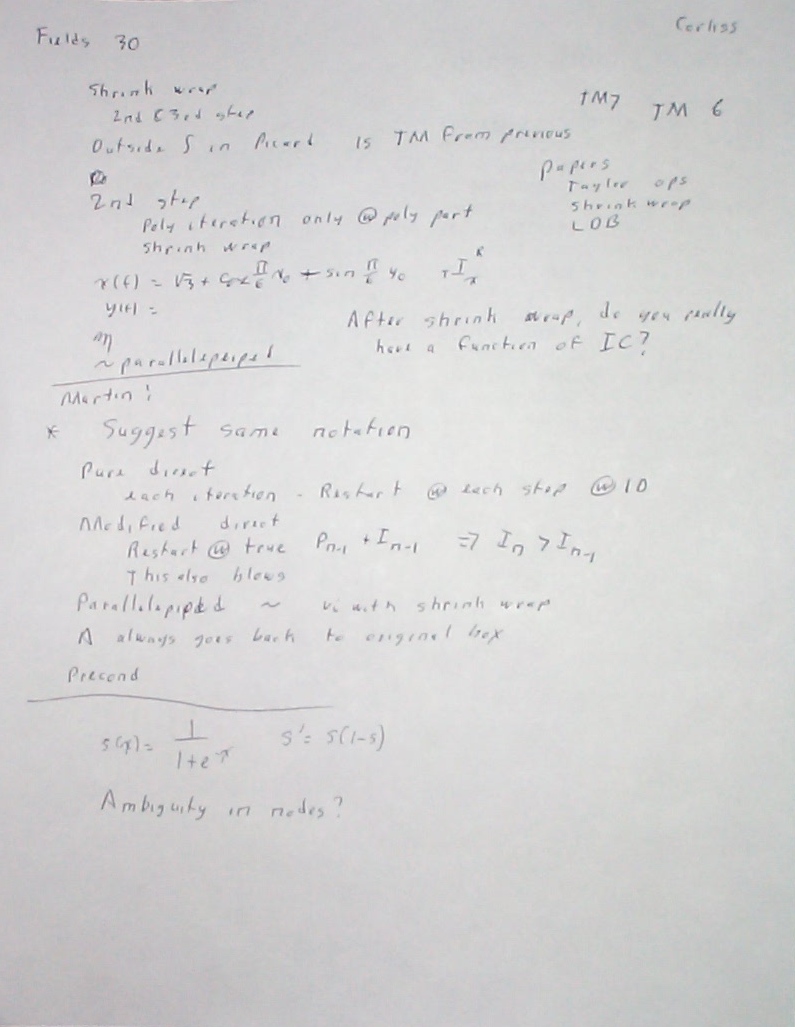 Fields 30
Corliss
Shrink wrap
2nd & 3rd step
TM7 TM 6
Outside ∫ in Picard is TM from previous
Papers
Taylor ops
Shrink wrap
LOB
2nd step
Poly iteration only @ poly part
Shrink wrap
x(t) = √3 + cos π/6 x₀ + sin π/6 y₀ + I_x^R
y(t) =
After shrink wrap, do you really
have a function of IC?
~ parallelepiped
Martin:
* Suggest same notation
Pure direct
each iteration - Restart @ each step @ 10
Modified direct
Restart @ true P_{n-1} + I_{n-1} ⇒ I_n > I_{n-1}
This also blows
Parallelepiped ~ vs with shrink wrap
A always goes back to original box
Precond
s(x) = 1/(1+e^{-x}) s' = s(1-s)
Ambiguity in nodes?